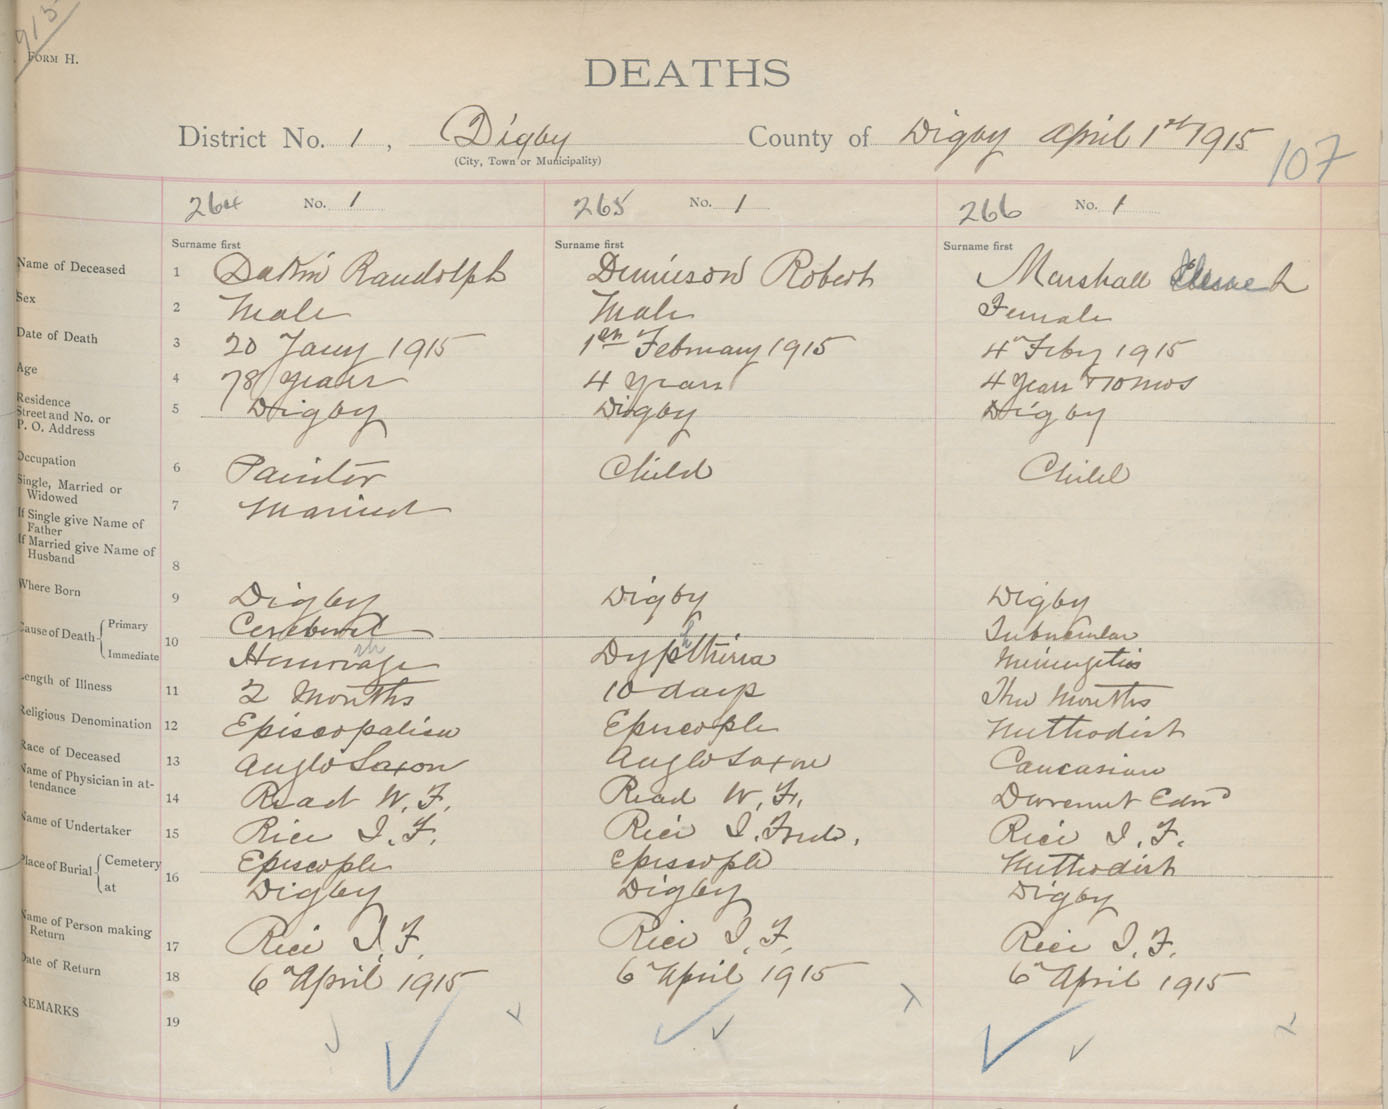 1915
FORM H.
DEATHS
District No. 1, Digby County of Digby April 1st 1915
107
(City, Town or Municipality)
264 No. 1 265 No. 1 266 No. 1
Surname first Surname first Surname first
Name of Deceased 1 Dakin Randolph Dennison Robert Marshall
Sex 2 Male Male Female
Date of Death 3 20 Jany 1915 1st February 1915 4 Feby 1915
Age 4 78 years 4 years 4 years & 10 mos
Residence Street and No. or P. O. Address 5 Digby Digby Digby
Occupation 6 Painter Child Child
Single, Married or Widowed 7 Married
If Single give Name of Father
If Married give Name of Husband 8
Where Born 9 Digby Digby Digby
Cause of Death { Primary Cerebural Tubucular
Immediate 10 Hemorage Dyptheria Meningetis
Length of Illness 11 2 Months 10 days Months
Religious Denomination 12 Episcopalian Episcople Methodist
Race of Deceased 13 Anglo Saxon Anglo Saxon Caucasian
Name of Physician in attendance 14 Read W. F. Read W. F.
Name of Undertaker 15 Rice I. F. Rice I. Rice I. F.
Place of Burial { Cemetery Episcople Episcople Methodist
at 16 Digby Digby Digby
Name of Person making Return 17 Rice I. F. Rice I. F. Rice I. F.
Date of Return 18 6 April 1915 6 April 1915 6 April 1915
REMARKS 19